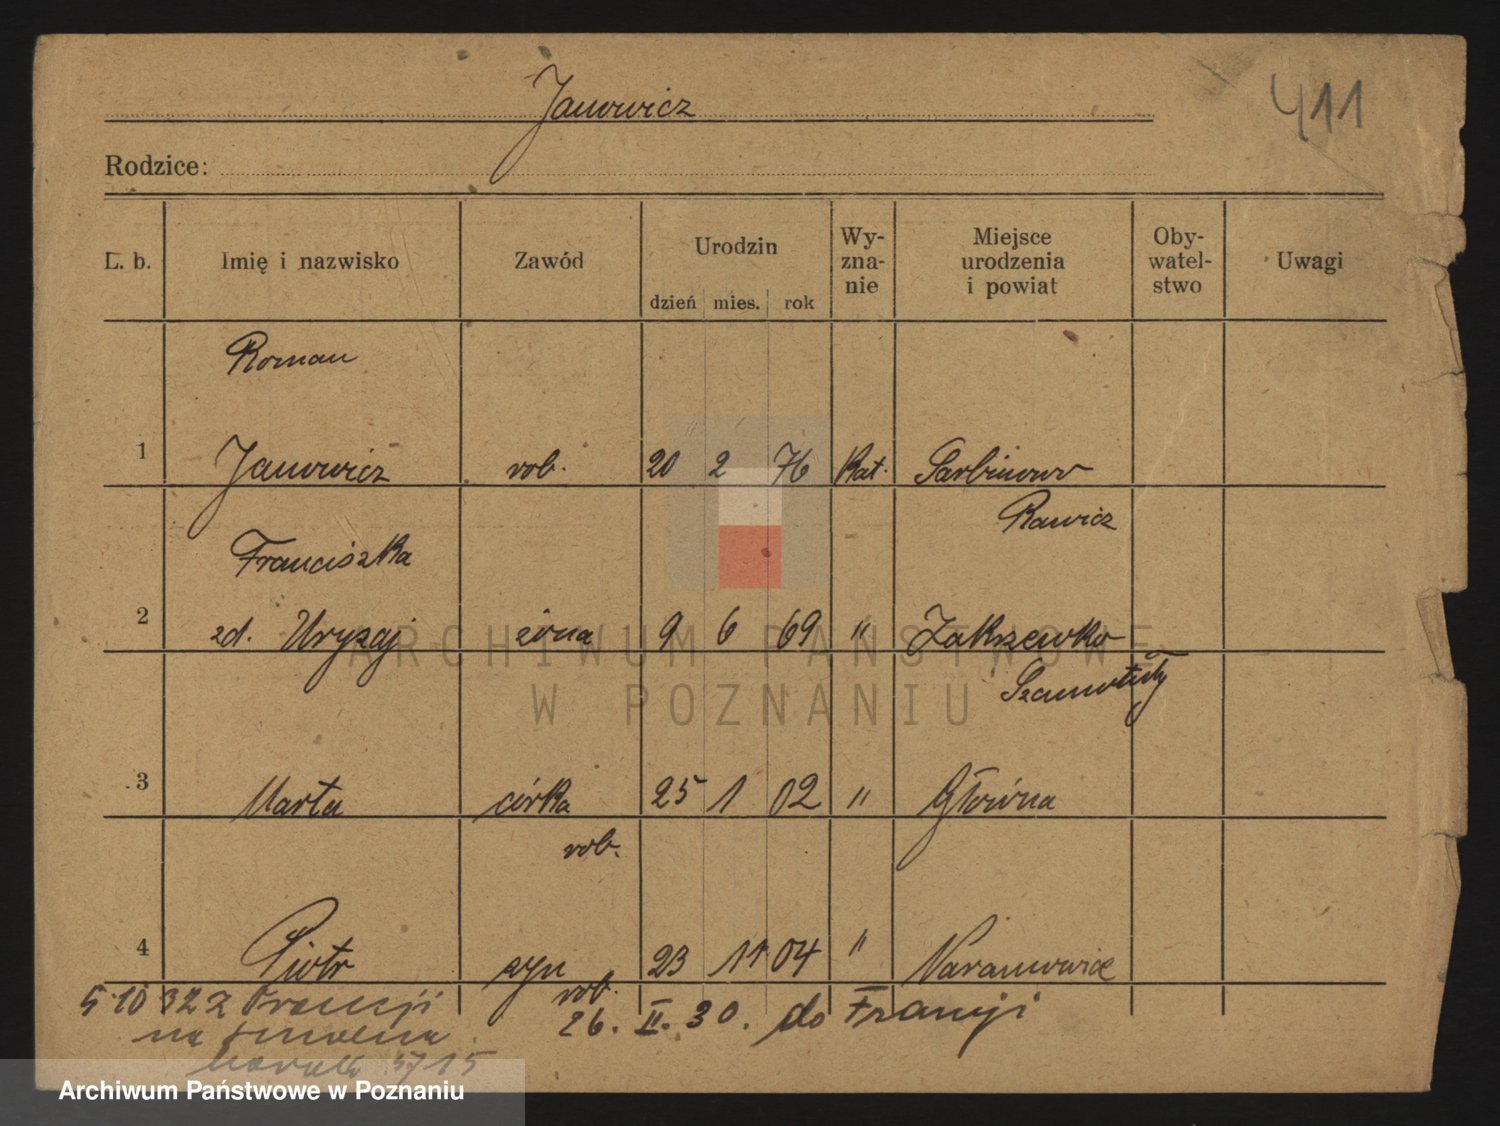 Janowicz
411
Rodzice:
L. b. Imię i nazwisko Zawód Urodzin dzień mies. rok Wy-zna-nie Miejsce urodzenia i powiat Oby-watel-stwo Uwagi
Roman
1 Janowicz rob. 20 2 76 Kat. Sarbinowo
Rawicz
Franciszka
2 zd. Uryzaj żona 9 6 69 " Zakrzewko
Szamotuły
3 Marta córka 25 1 02 " Główna
rob.
4 Piotr syn 23 11 04 "
rob.
5 10 32 z Francji
26. II. 30. do Francji
na
15
ARCHIWUM PAŃSTWOWE
W POZNANIU
Archiwum Państwowe w Poznaniu